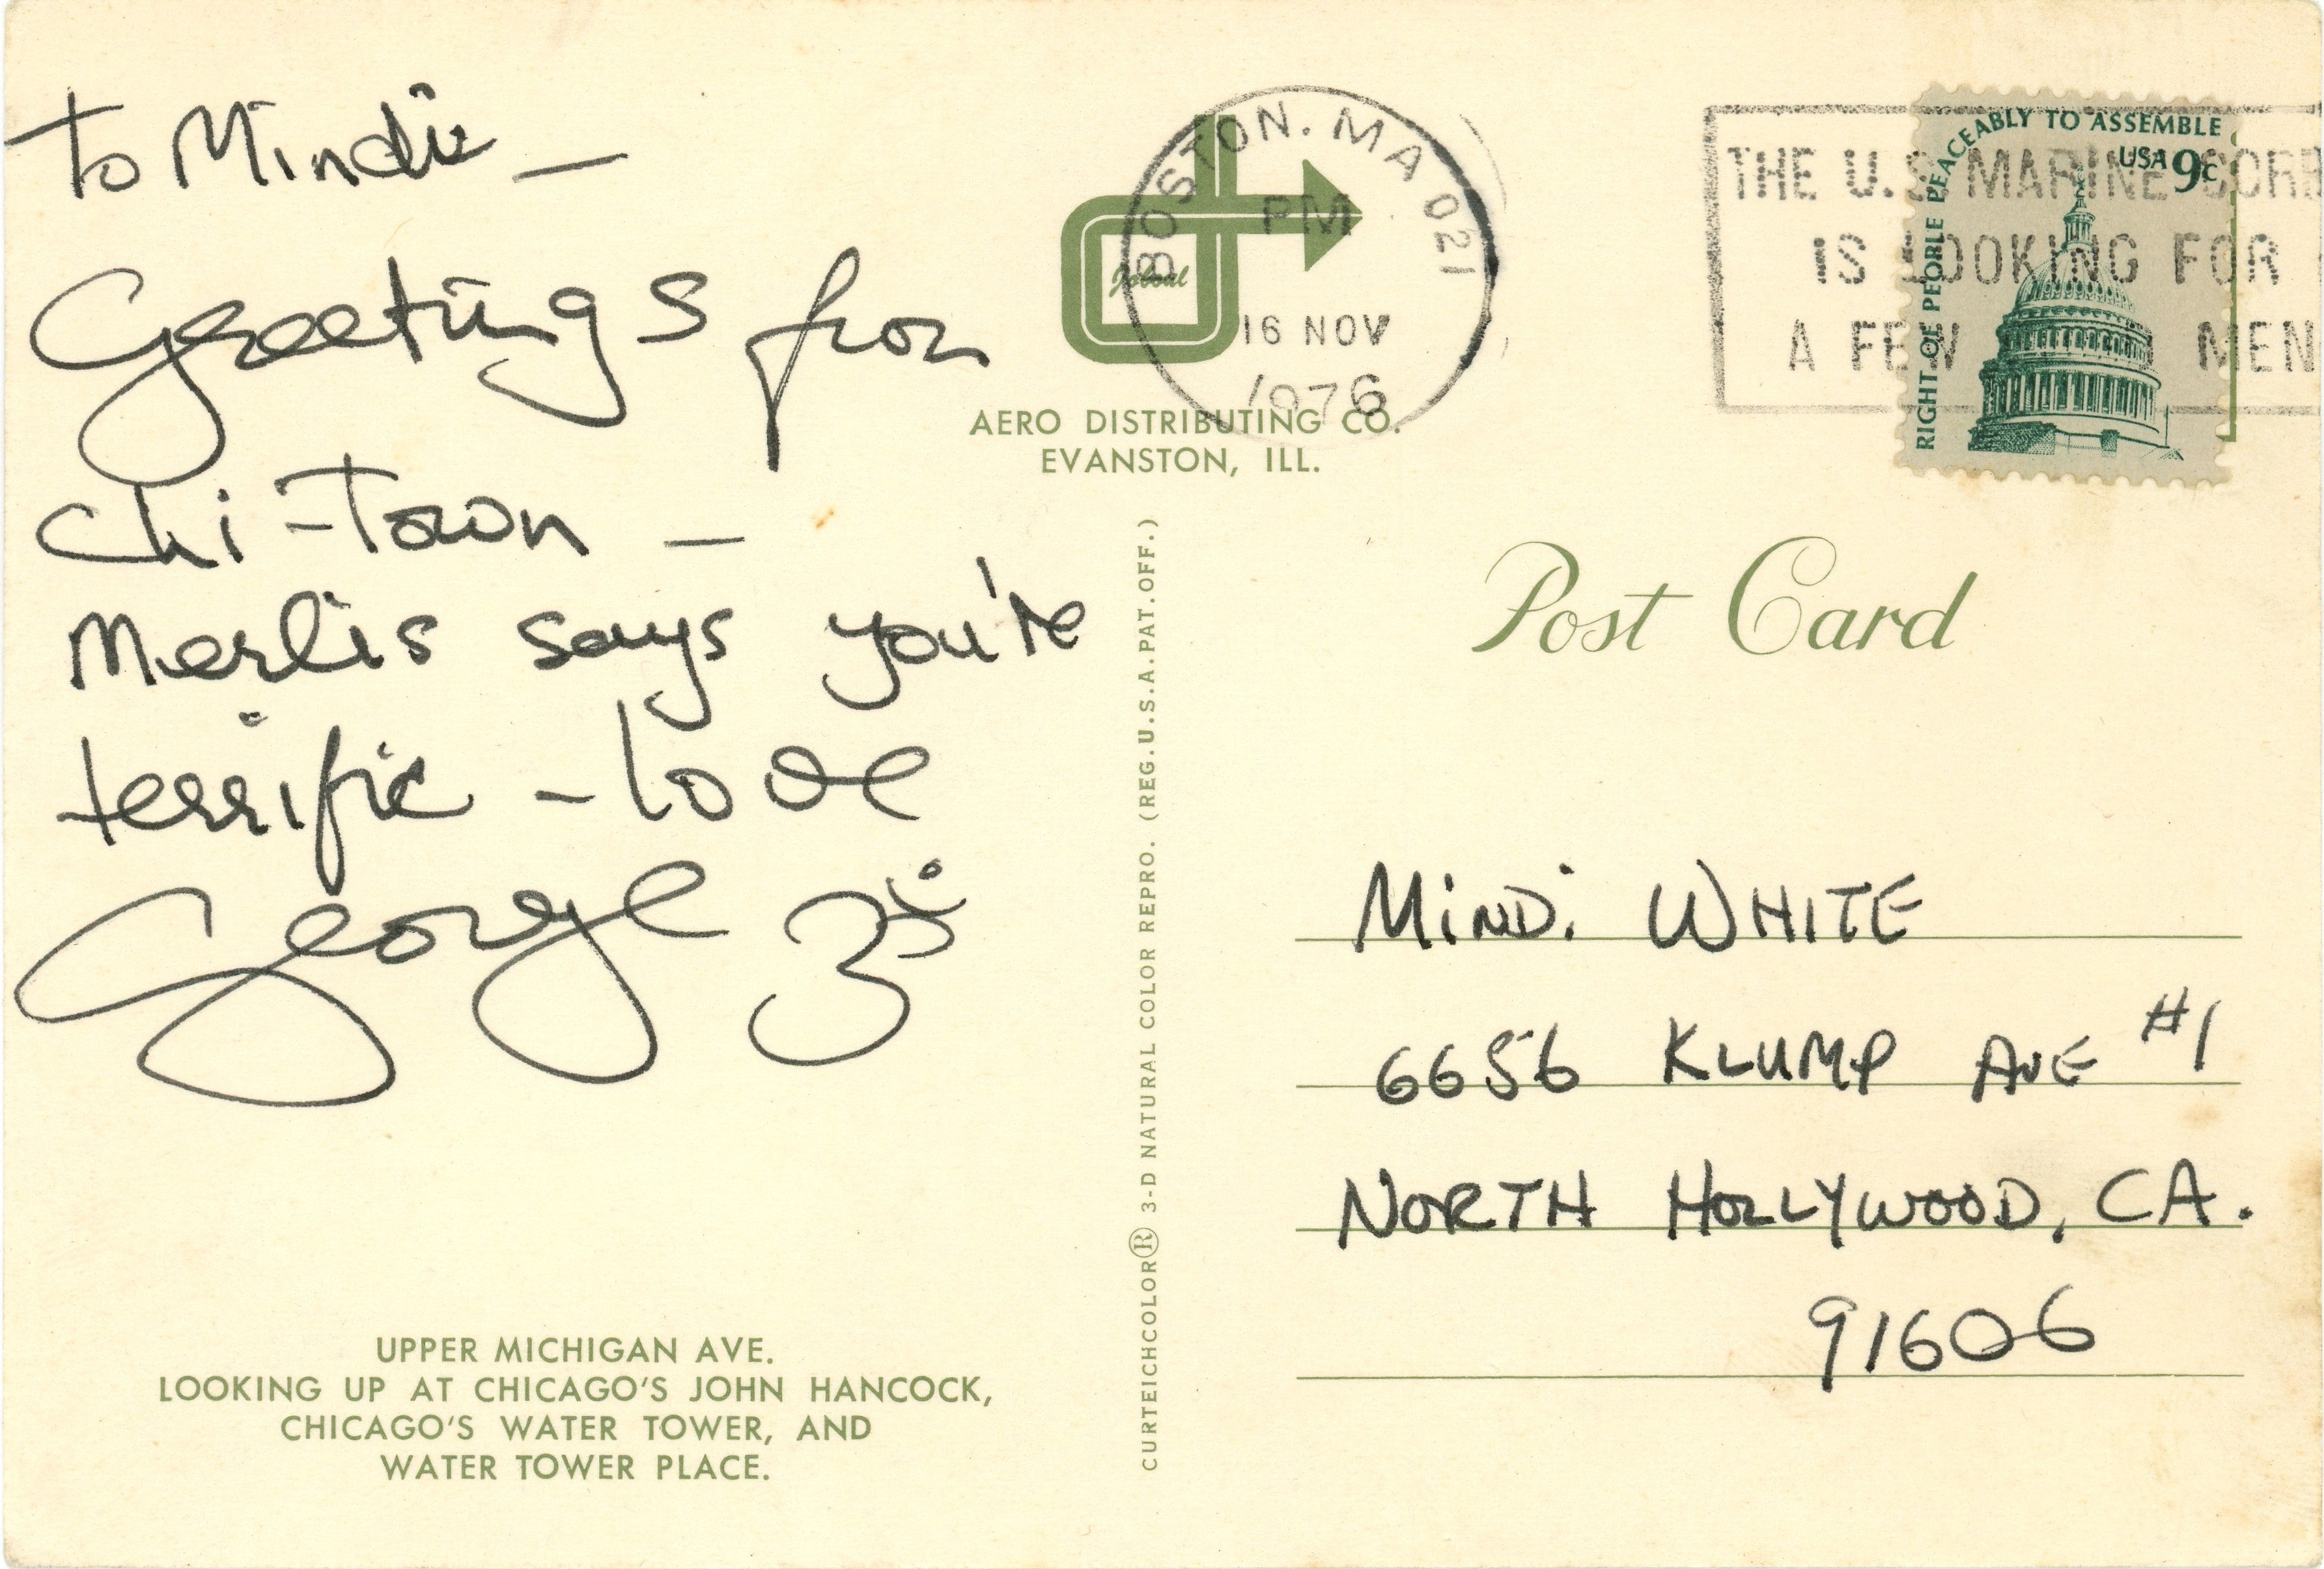 To Mindi —
Greetings from
Chi-Town —
Merlis says you're
terrific - love
George 3
AERO DISTRIBUTING CO.
EVANSTON, ILL.
BOSTON. MA 021
PM
16 NOV
1976
THE U.S. MARINE CORP
IS LOOKING FOR
A FEW MEN
RIGHT OF PEOPLE PEACEABLY TO ASSEMBLE
USA 9c
Post Card
CURTEICHCOLOR® 3-D NATURAL COLOR REPRO. (REG.U.S.A.PAT.OFF.)
MiNDi WHITE
6656 KLUMP AVE #1
NORTH HOLLYWOOD, CA.
91606
UPPER MICHIGAN AVE.
LOOKING UP AT CHICAGO'S JOHN HANCOCK,
CHICAGO'S WATER TOWER, AND
WATER TOWER PLACE.